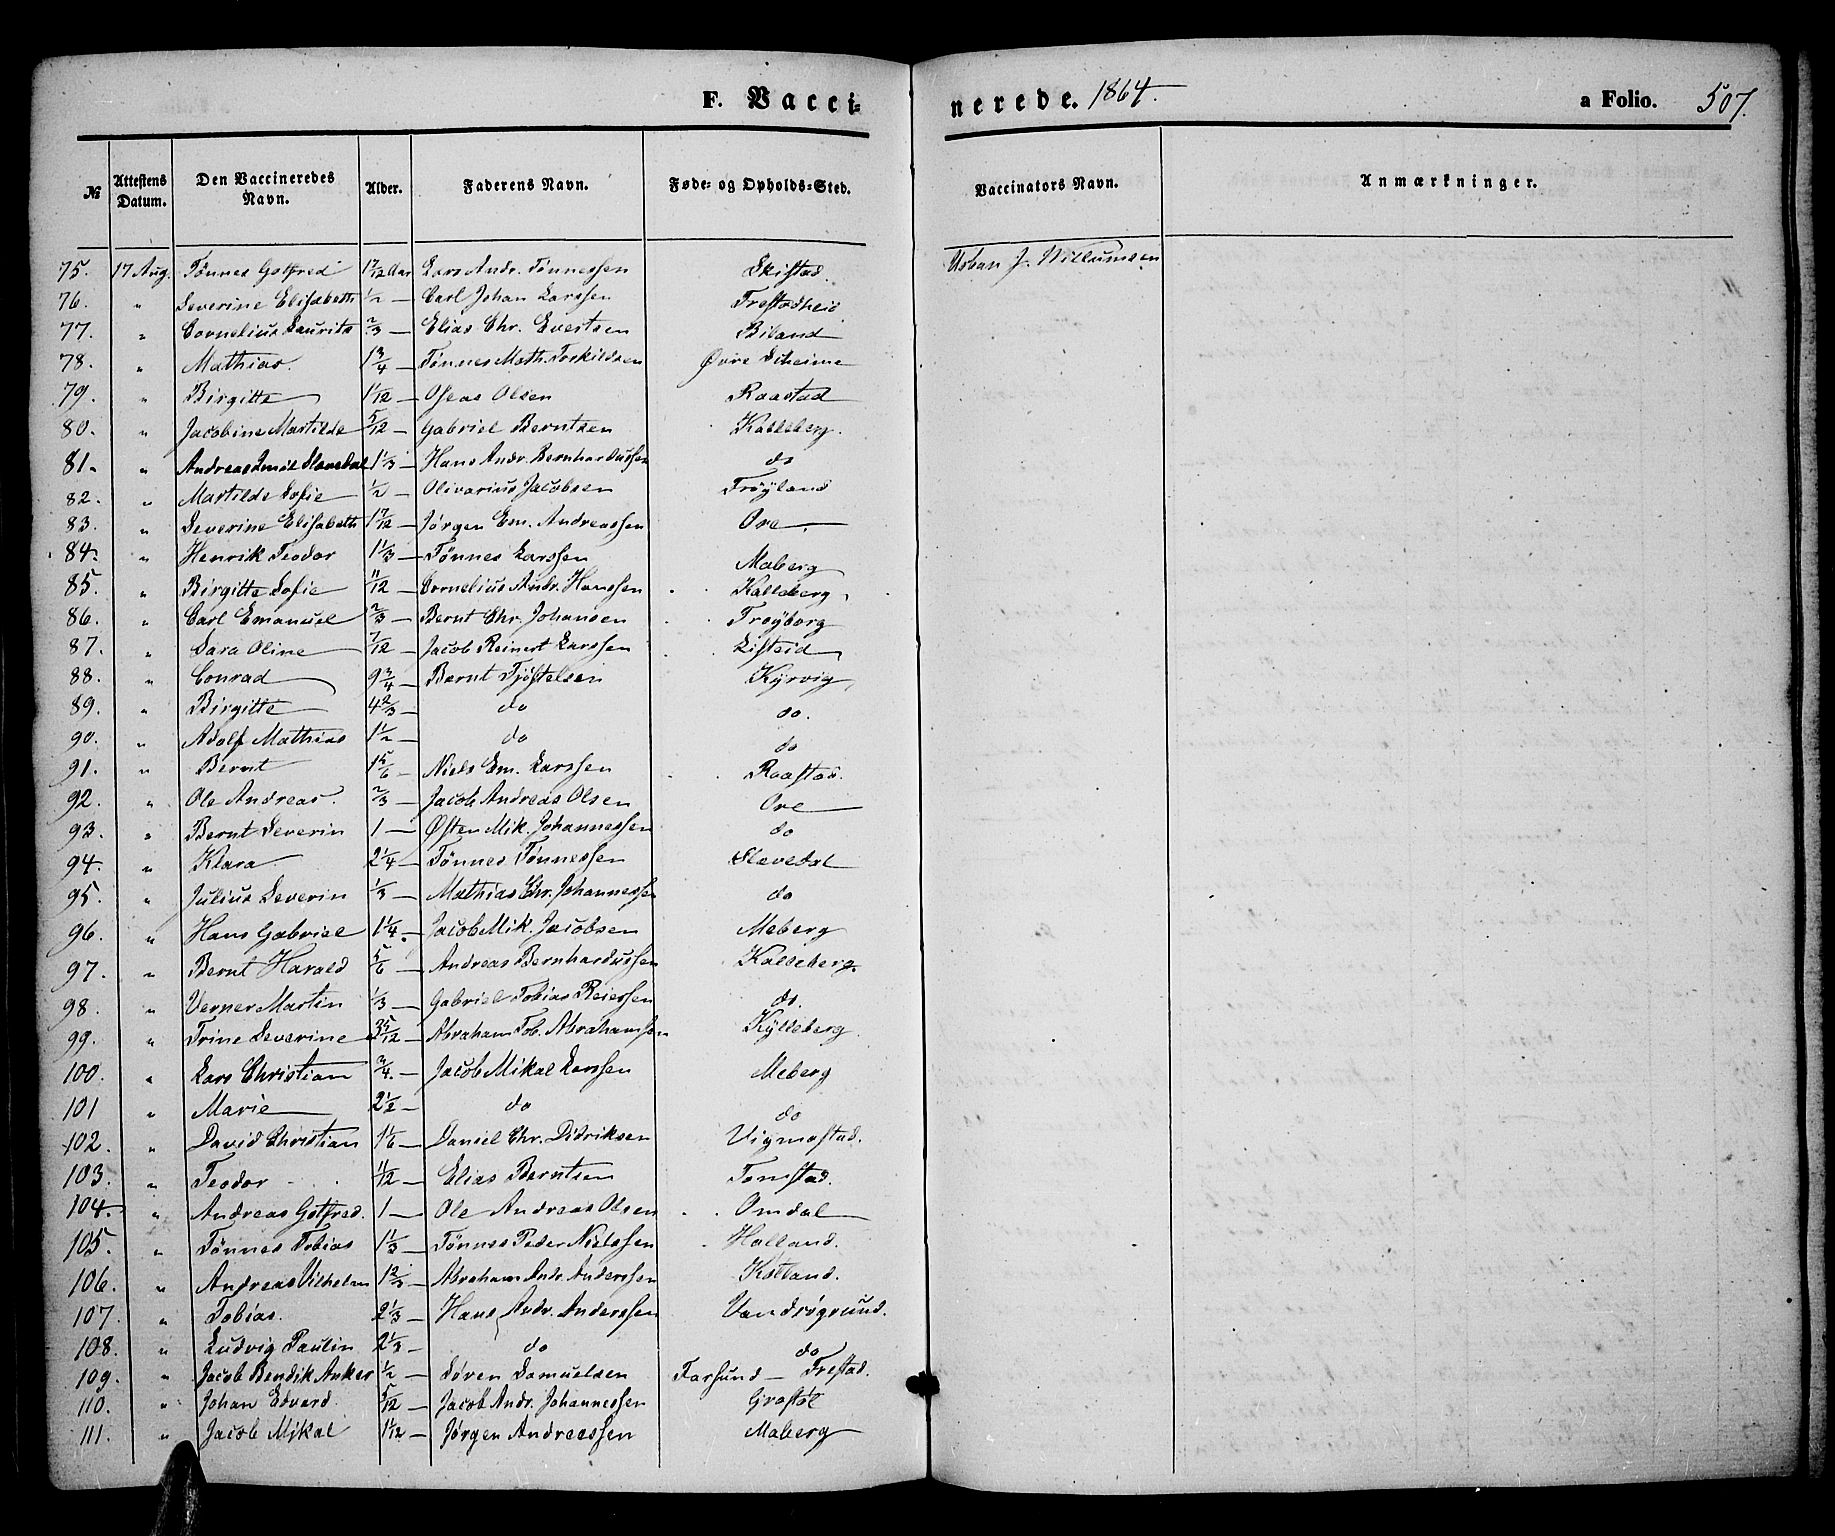 F. Vacci= nerede. 1864. a Folio. 507.
№ Attestens Datum. Den Vaccineredes Navn. Alder. Faderens Navn. Føde- og Opholds-Sted. Vaccinators Navn. Anmærkninger.
75. 17 Aug. Tønnes Gotfred 1 7/12 Aar Lars Andr. Tønnessen Skistad. J. Willumsen
76. " Severine Elisabeth 1/2 — Carl Johan Larssen Frestadheid.
77. " Cornelius Laurits 2/3 — Elias Chr. Evertsen Biland
78. " Mathias. 1 3/4 — Tønnes Math. Torkildsen Øvre
79. " Birgitte 1 1/12 — Oseas Olsen Raastad
80. " Jacobine Martilde 5/12 — Gabriel Berntsen Kalleberg.
81. " Andreas Emil Slevedal 1 1/3 — Hans Andr. Bernhardussen do
82. " Martilde Sofie 1/2 — Olivarius Jacobsen Trøyland
83. " Severine Elisabeth 1 7/12 — Jørgen Em. Andreassen Ore
84. " Henrik Teodor 1 1/3 — Tønnes Larssen Maberg
85. " Birgitte Sofie 11/12 — Cornelius Andr. Hanssen Kalleberg
86. " Carl Emanuel 2/3 — Bernt Chr. Johansen Trøyborg
87. " Sara Oline 7/12 — Jacob Reinert Larssen Listeid
88. " Conrad 9 3/4 — Bernt Tjøstelsen Kjørvig
89. " Birgitte 4 2/3 — do do.
90. " Adolf Mathias 1 1/2 — do do
91. " Bernt 1 5/6 — Niels Em. Larssen Raastad.
92. " Ole Andreas. 2/3 — Jacob Andreas Olsen Ore
93. " Bernt Severin 1 — Østen Mik. Johannessen do
94. " Klara 2 1/4 — Tønnes Tønnessen Slevedal
95. " Julius Severin 1/3 — Mathias Chr. Johannessen do
96. " Hans Gabriel 1 1/4. Jacob Mik. Jacobsen Meberg
97. " Bernt Harald 5/6 — Andreas Bernhardussen Kalleberg.
98. " Verner Martin 1/3 — Gabriel Tobias Reiersen do.
99. " Trine Severine 3 5/12 — Abraham Tob. Abrahamsen Kylleberg.
100. " Lars Christian 3/4. — Jacob Mikal Larssen Meberg
101 " Marie 2 1/2 — do do
102. " David Christian 1 1/6 — Daniel Chr. Didriksen Vigmostad.
103. " Teodor 11/12 — Elias Berntsen Tomstad.
104. " Andreas Gotfred. 1 — Ole Andreas Olsen Omdal
105. " Tønnes Tobias 1 1/3 — Tønnes Peder Nielssen Holland.
106. " Andreas Vilhelm 1 2/3 — Abraham Andr. Anderssen Kolland.
107. " Tobias. 2 1/3 — Hans Andr. Anderssen Vandrøgrund.
108. " Ludvig Paulin 2 1/3 — do do
109. " Jacob Bendik Anker 1/2 — Søren Samuelsen Farsund — Frestad.
110. " Johan Edvard. 5/12 — Jacob Andr. Johannessen Grostøl
111. " Jacob Mikal 1 1/12 — Jørgen Andreassen Maberg